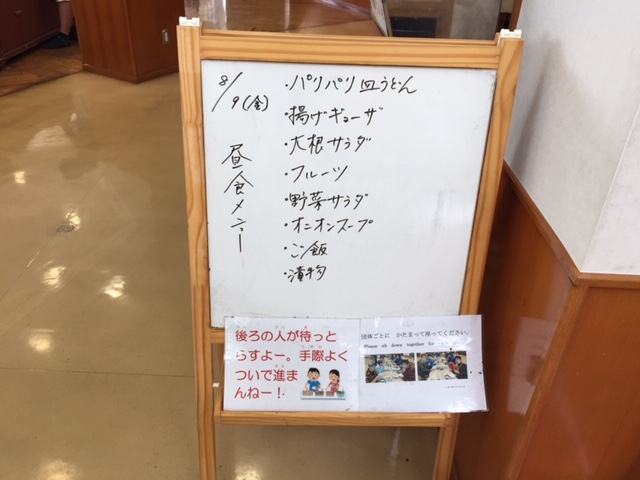 8/9(金)
昼食メニュー
・パリパリ皿うどん
・揚げギョーザ
・大根サラダ
・フルーツ
・野菜サラダ
・オニオンスープ
・ご飯
・漬物
後ろの人が待っと
らすよー。手際よく
ついで進ま
んねー！
団体ごとに かたまって座ってください。
Please sit down together for